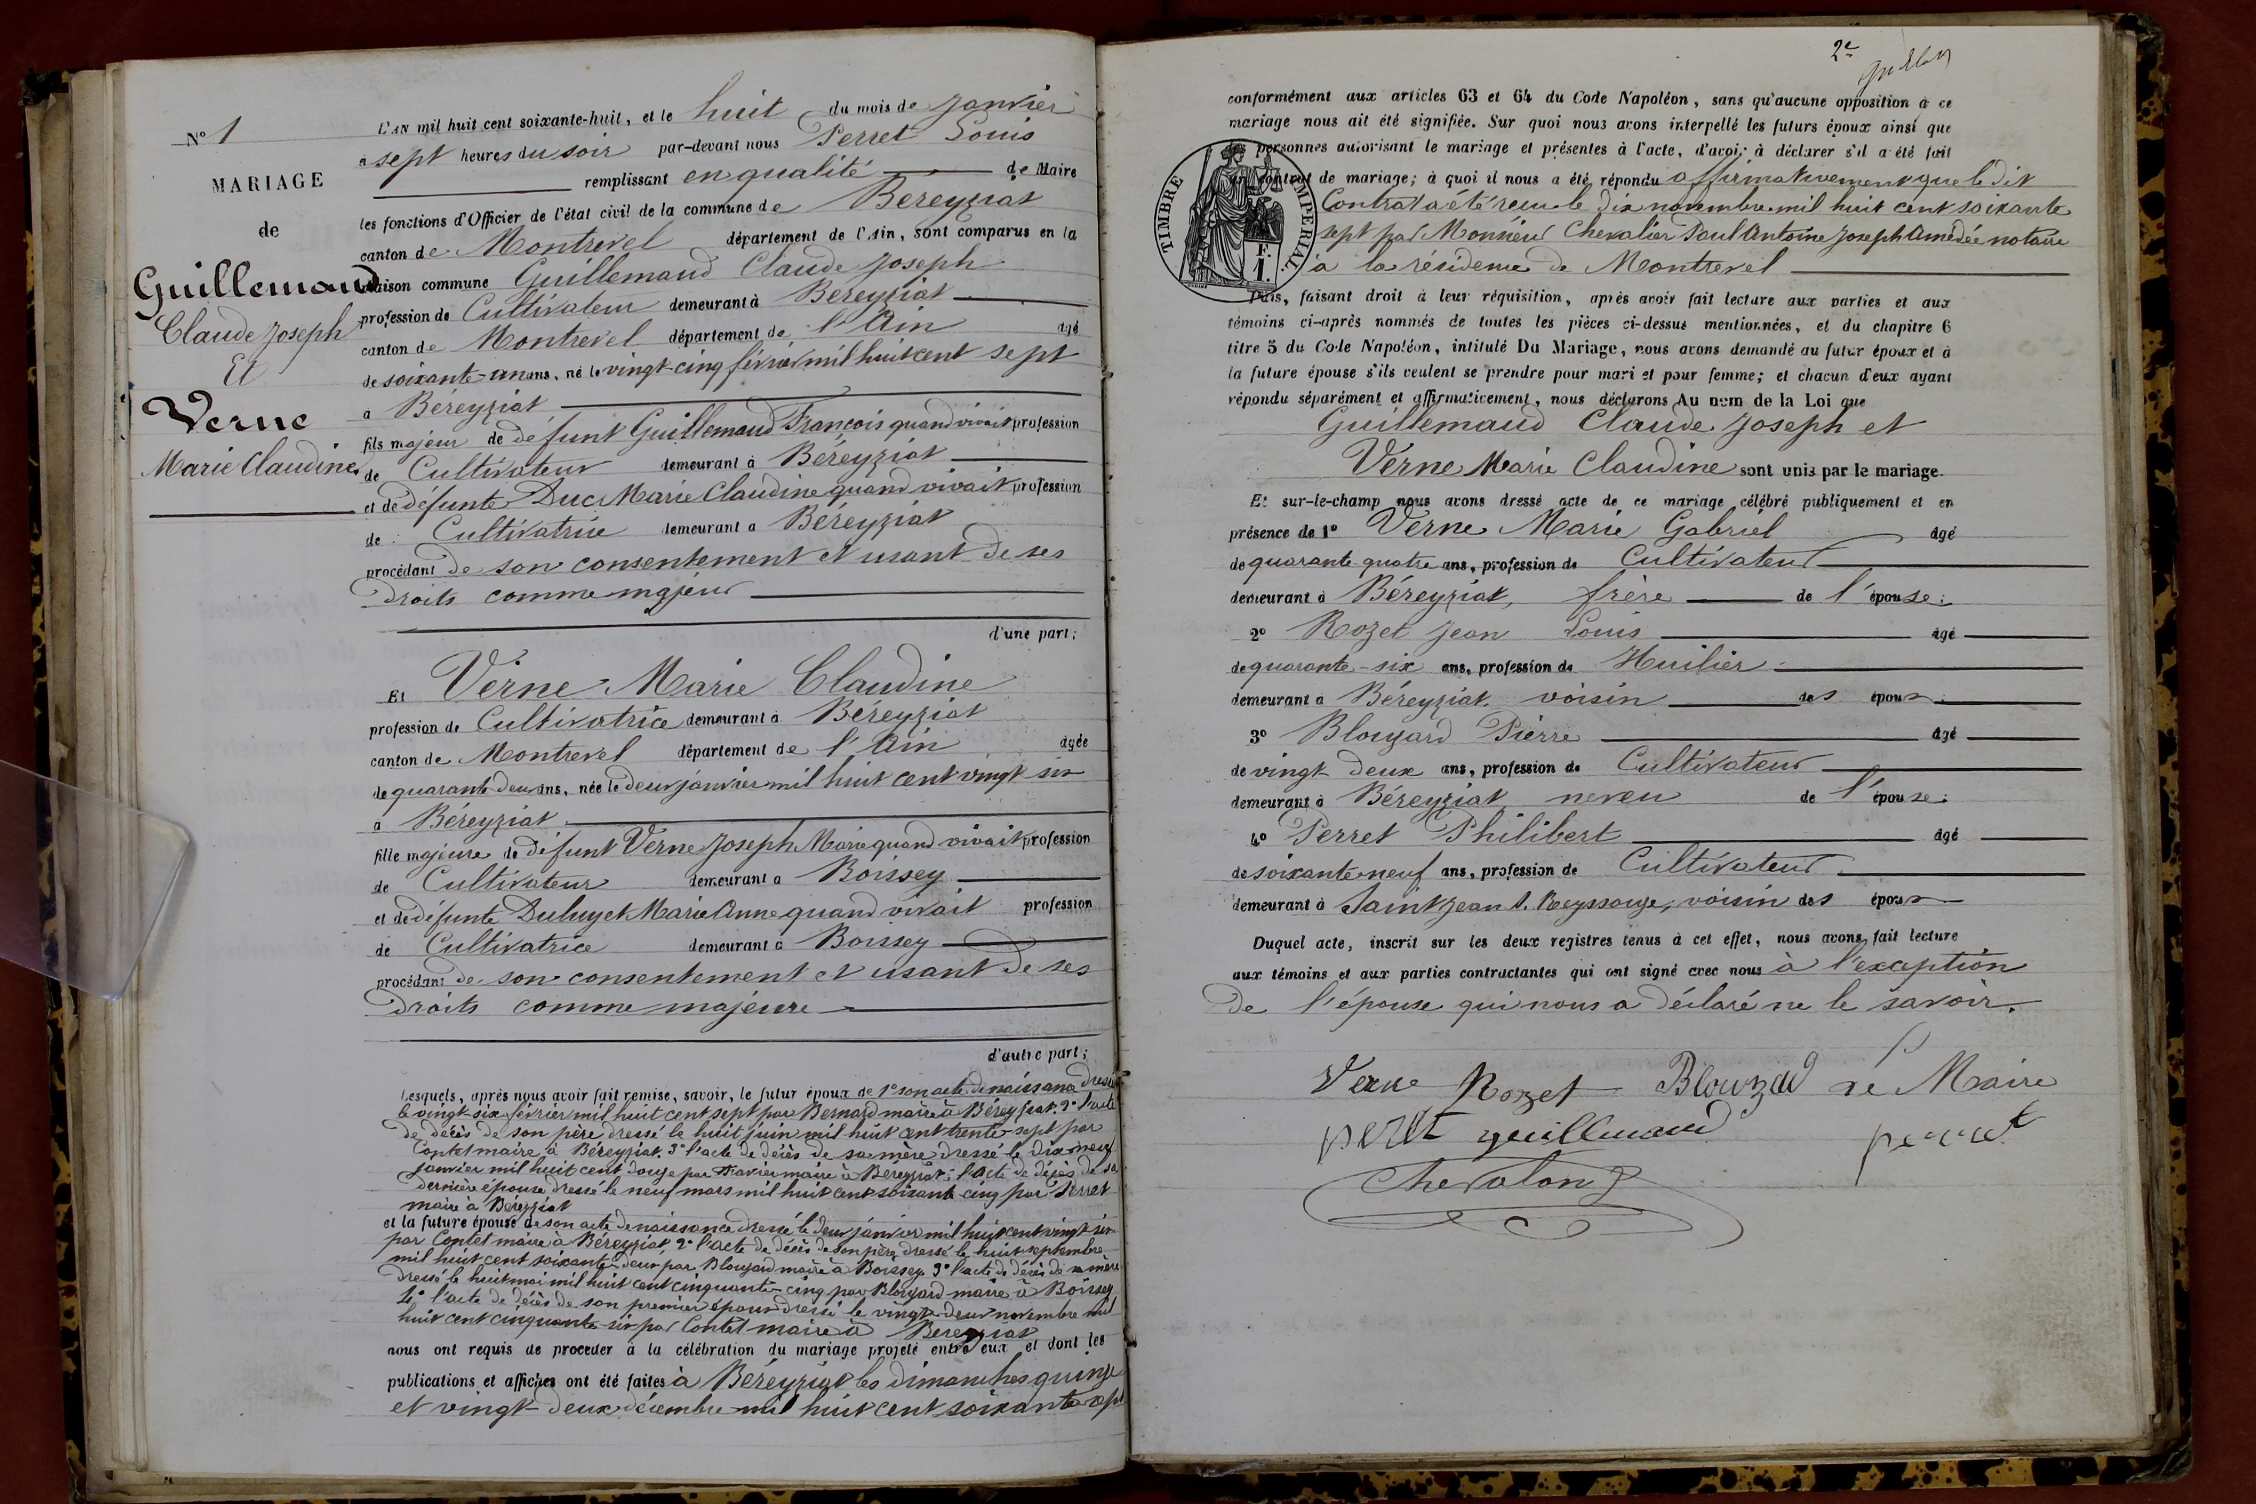 N° 1
MARIAGE
de
Guillemaud
Claude Joseph
Et
Verne
Marie Claudine
L'AN mil huit cent soixante-huit, et le huit du mois de Janvier
à sept heures du soir par-devant nous Perret Louis
remplissant en qualité de Maire
les fonctions d'Officier de l'état civil de la commune de Béreyziat
canton de Montrevel département de l'Ain, sont comparus en la
maison commune Guillemaud Claude Joseph
profession de Cultivateur demeurant à Béreyziat
canton de Montrevel département de l'Ain âgé
de soixante-un ans, né le vingt-cinq février mil huit cent sept
à Béreyziat
fils majeur de défunt Guillemaud François quand vivait profession
de Cultivateur demeurant à Béréyziat
et de défunte Duc Marie Claudine quand vivait profession
de Cultivatrice demeurant à Béréyziat
procédant de son consentement et usant de ses
droits comme majeur
d'une part;
Et Verne Marie Claudine
profession de Cultivatrice demeurant à Béréyziat
canton de Montrevel département de l'Ain âgée
de quarante-deux ans, née le deux janvier mil huit cent vingt six
à Béréyziat
fille majeure de défunt Verne Joseph Marie quand vivait profession
de Cultivateur demeurant à Boissey
et de défunte Duluyet Marie Anne quand vivait profession
de Cultivatrice demeurant à Boissey
procédant de son consentement et usant de ses
droits comme majeure
d'autre part;
Lesquels, après nous avoir fait remise, savoir, le futur époux de 1° son acte de naissance dressé
le vingt-six février mil huit cent sept par Bernard maire à Béreyziat. 2° l'acte
de décès de son père dressé le huit juin mil huit cent trente-sept par
Contet maire à Béreyziat. 3° l'acte de décès de sa mère dressé le dix neuf
janvier mil huit cent douze par maire à Béreyziat; l'acte de décès de sa
dernière épouse dressé le neuf mars mil huit cent soixante cinq par Perret
maire à Béréyziat
et la future épouse de son acte de naissance dressé le deux janvier mil huit cent vingt-six
par Contet maire à Béreyziat, 2° l'acte de décès de son père dressé le huit septembre
mil huit cent soixante-deux par Blouzard maire à Boissey 3° l'acte de décès de sa mère
dressé le huit mai mil huit cent cinquante-cinq par Blouzard maire à Boissey
4° l'acte de décès de son premier époux dressé le vingt-deux novembre mil
huit cent cinquante-six par Contet maire à Béreyziat
nous ont requis de procéder à la célébration du mariage projeté entre eux et dont les
publications et affiches ont été faites à Béréyziat les dimanches quinze
et vingt-deux décembre mil huit cent soixante sept
2e
conformément aux articles 63 et 64 du Code Napoléon, sans qu'aucune opposition à ce
mariage nous ait été signifiée. Sur quoi nous avons interpellé les futurs époux ainsi que
les personnes autorisant le mariage et présentes à l'acte, d'avoir à déclarer s'il a été fait
un contrat de mariage; à quoi il nous a été répondu affirmativement que le dit
Contrat a été reçu le dix novembre mil huit cent soixante
sept par Monsieur Chevalier Paul Antoine Joseph Amédée notaire
à la résidence de Montrevel
TIMBRE IMPERIAL.
F.
1.
Puis, faisant droit à leur réquisition, après avoir fait lecture aux parties et aux
témoins ci-après nommés de toutes les pièces ci-dessus mentionnées, et du chapitre 6
titre 5 du Code Napoléon, intitulé Du Mariage, nous avons demandé au futur époux et à
la future épouse s'ils veulent se prendre pour mari et pour femme; et chacun d'eux ayant
répondu séparément et affirmativement, nous déclarons Au nom de la Loi que
Guillemaud Claude Joseph et
Verne Marie Claudine sont unis par le mariage.
Et sur-le-champ nous avons dressé acte de ce mariage célébré publiquement et en
présence de 1° Verne Marie Gabriel âgé
de quarante-quatre ans, profession de Cultivateur
demeurant à Béreyziat, frère de l'épouse;
2° Rozet Jean Louis âgé
de quarante-six ans, profession de Huilier
demeurant à Béreyziat. voisin des époux;
3° Blouzard Pierre âgé
de vingt deux ans, profession de Cultivateur
demeurant à Béreyziat, neveu de l'épouse;
4° Perret Philibert âgé
de soixante-neuf ans, profession de Cultivateur
demeurant à Saint Jean s. Reyssouze, voisin des époux
Duquel acte, inscrit sur les deux registres tenus à cet effet, nous avons fait lecture
aux témoins et aux parties contractantes qui ont signé avec nous à l'exception
de l'épouse qui nous a déclaré ne le savoir.
Verne Rozet Blouzard Le Maire
peret guillemaud perret
Chevalon